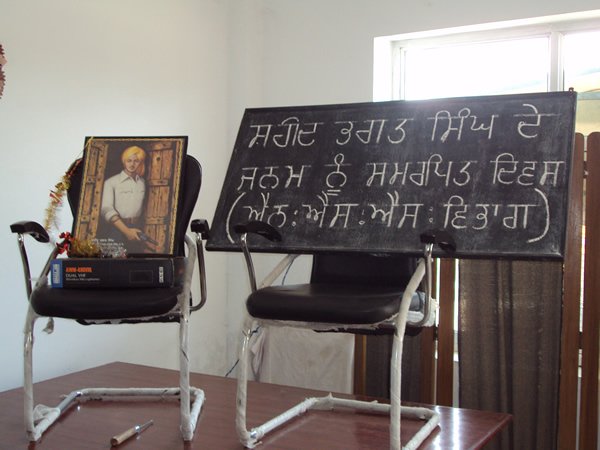 ਸ਼ਹੀਦ ਭਗਤ ਸਿੰਘ ਦੇ
ਜਨਮ ਨੂੰ ਸਮਰਪਿਤ ਦਿਵਸ
(ਐਨ:ਐਸ:ਐਸ: ਵਿਭਾਗ)
DUAL VHF